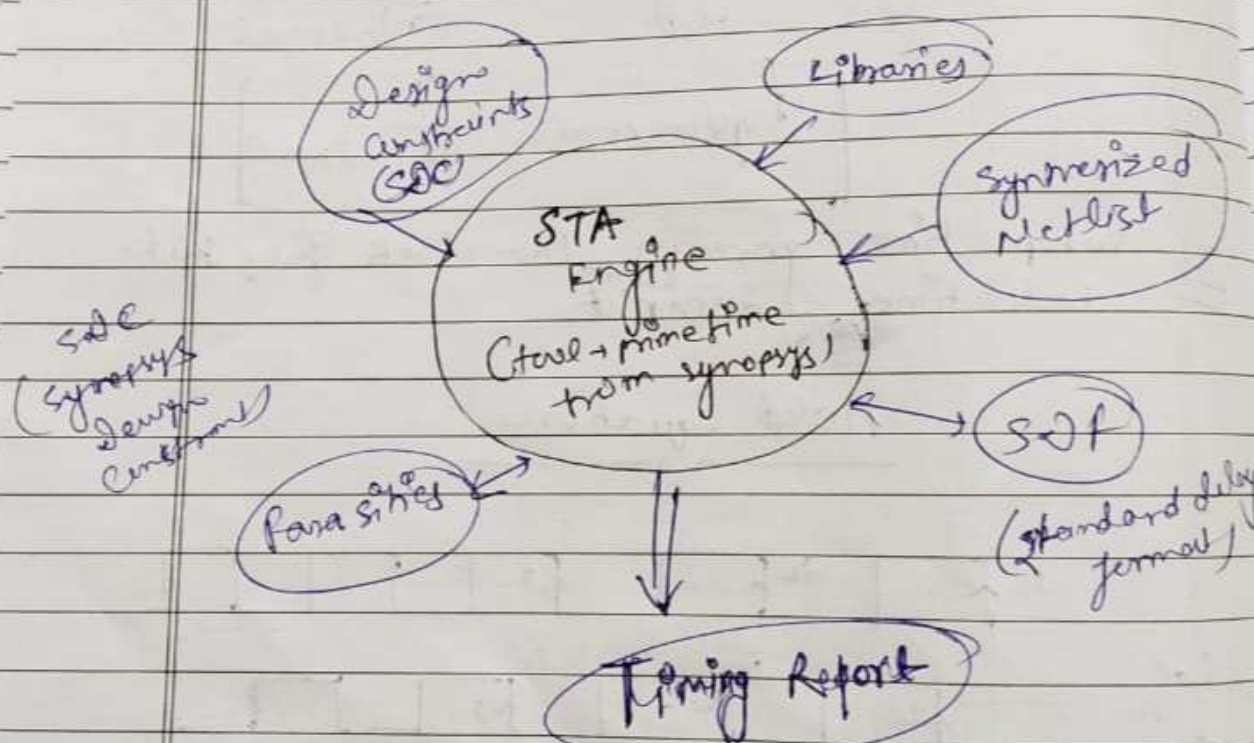 Design
Constraints
(SDC)
Libraries
Synthesized
Netlist
STA
Engine
(tool → primetime
from synopsys)
SDC
(Synopsys
Design
Constraint)
SDF
(standard delay
format)
Parasitics
Timing Report